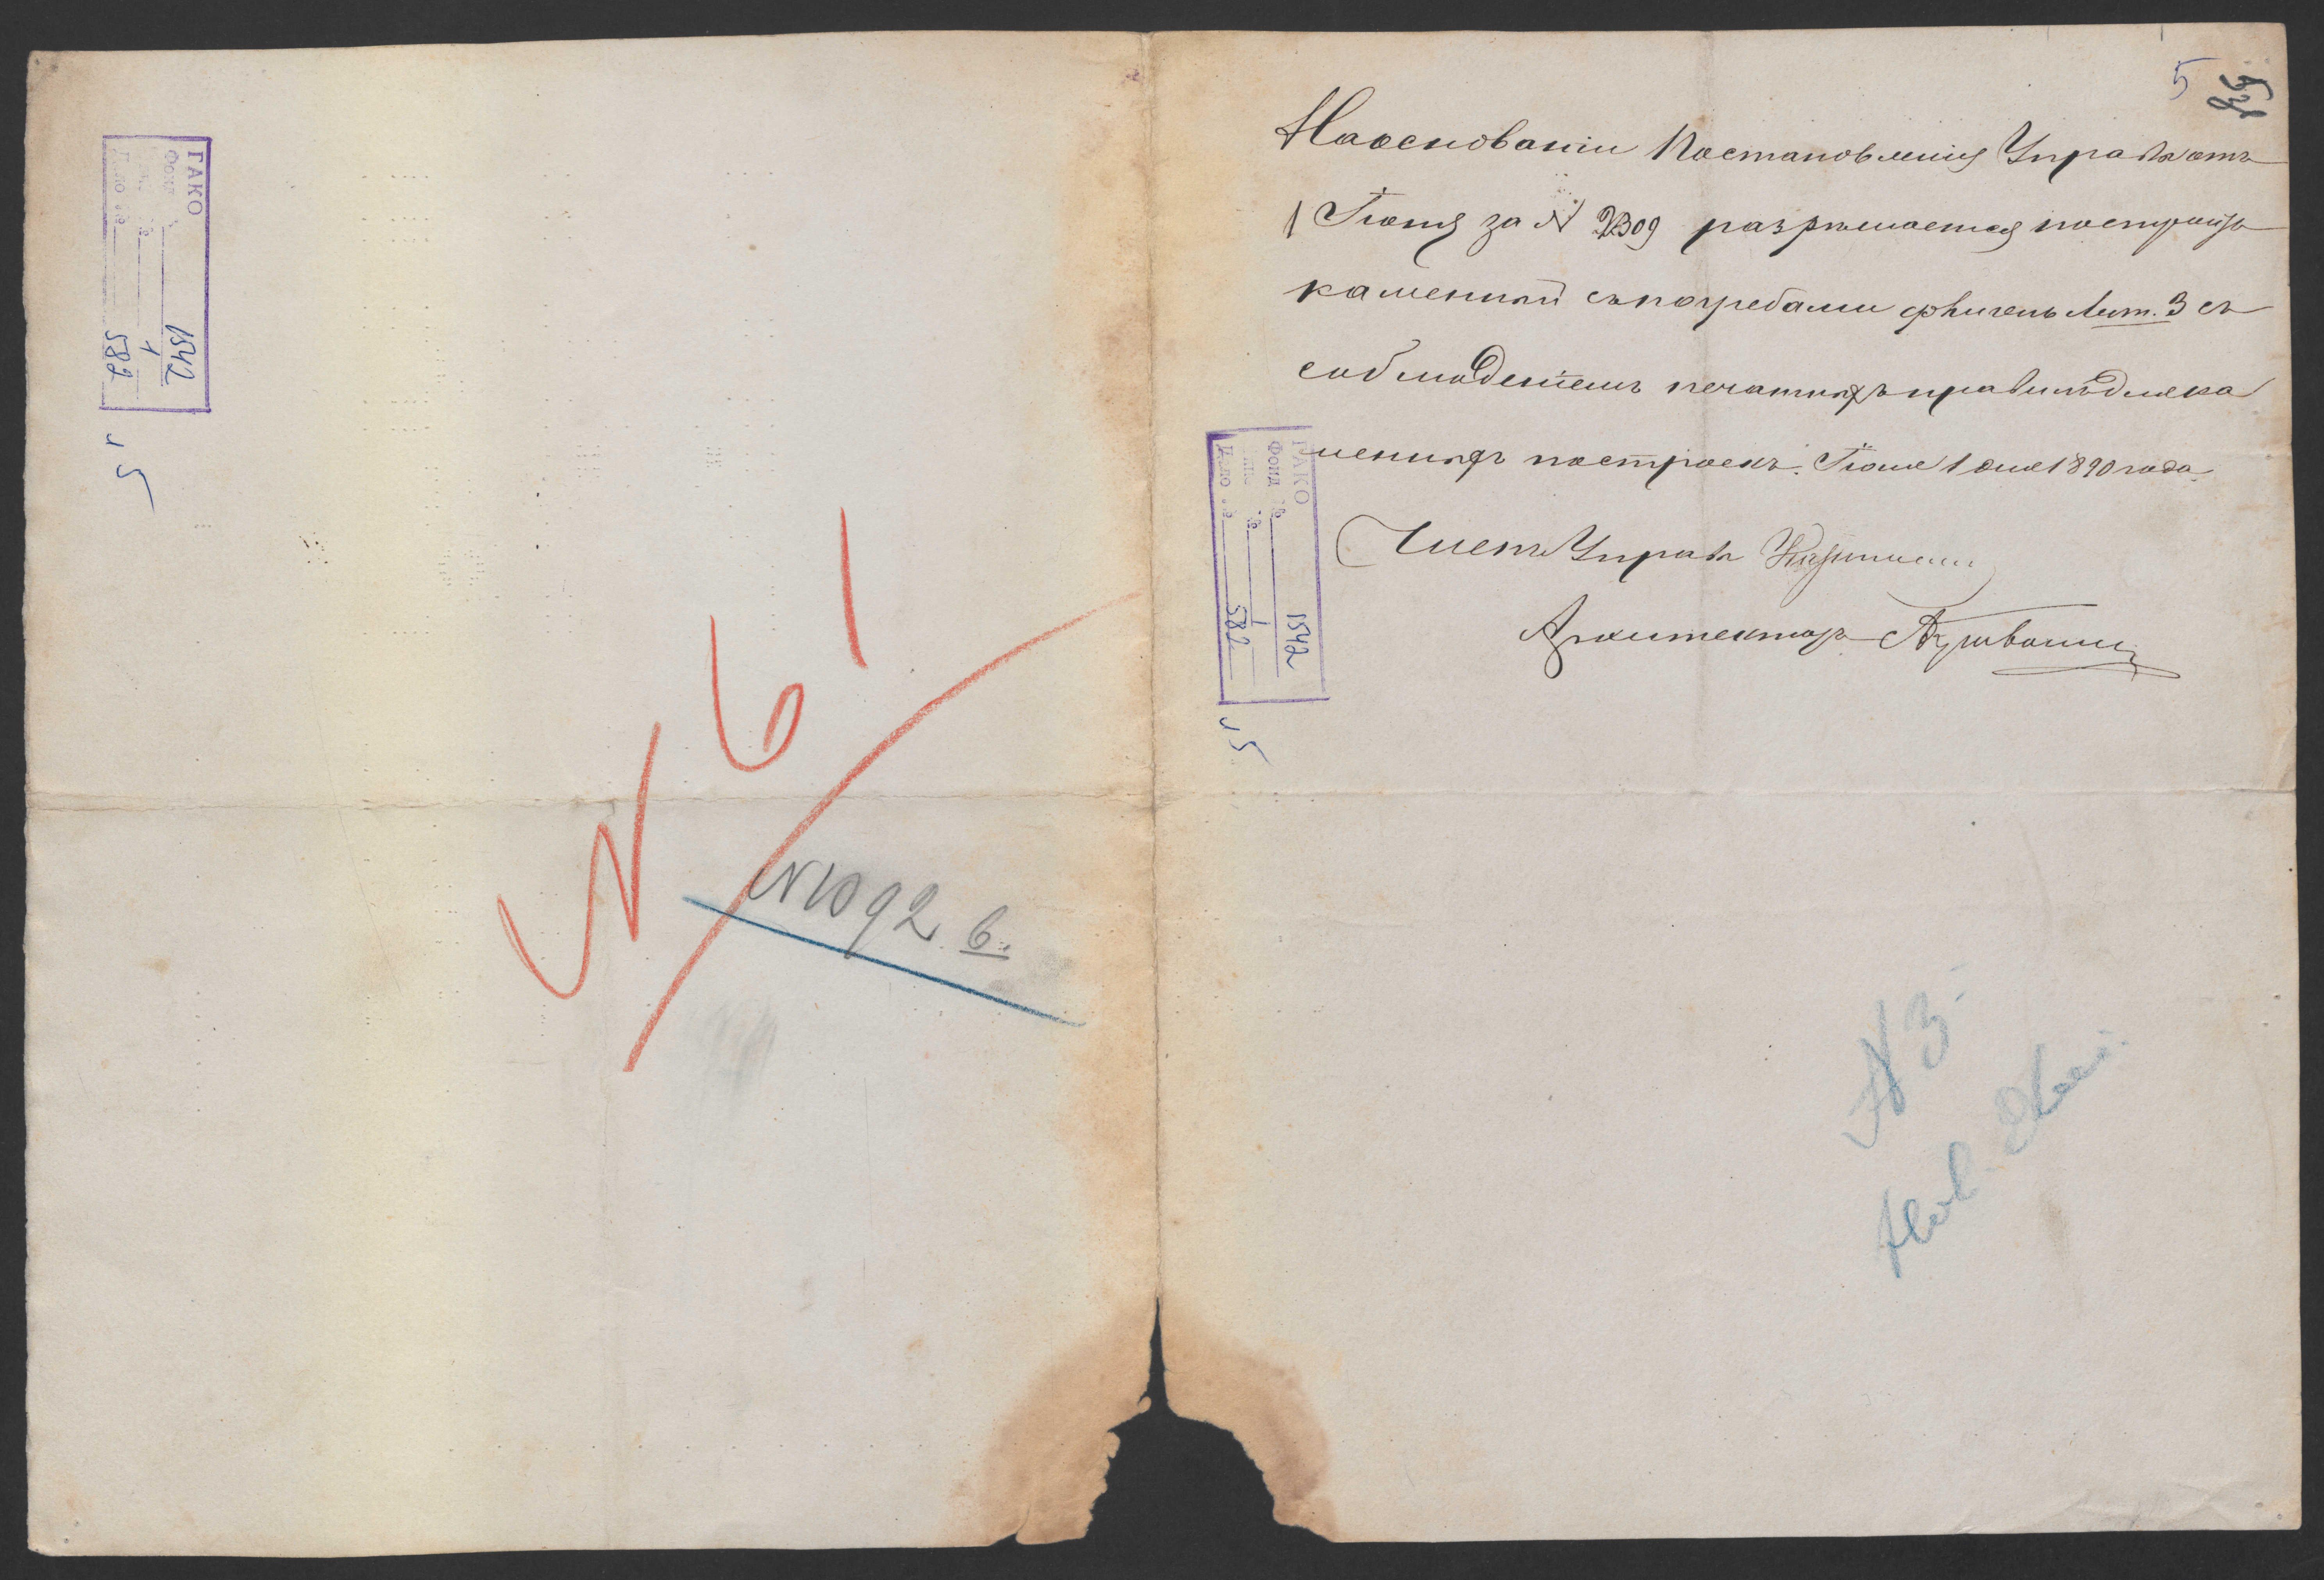 ГАКО
Фонд № 1542
Опись № 1
Дело № 582
л 5
N 61
N 1092 б.
5
На основаніи Постановленія Управы отъ
1 Іюня за N 2309 разрѣшается построить
каменный съ погребами флигель Лит. З съ
соблюденіемъ печатныхъ правилъ для ка
менныхъ построекъ. Іюня 1 дня 1890 года
Членъ Управы
Архитекторъ
ГАКО
Фонд № 1542
Опись № 1
Дело № 582
л 5
N 3